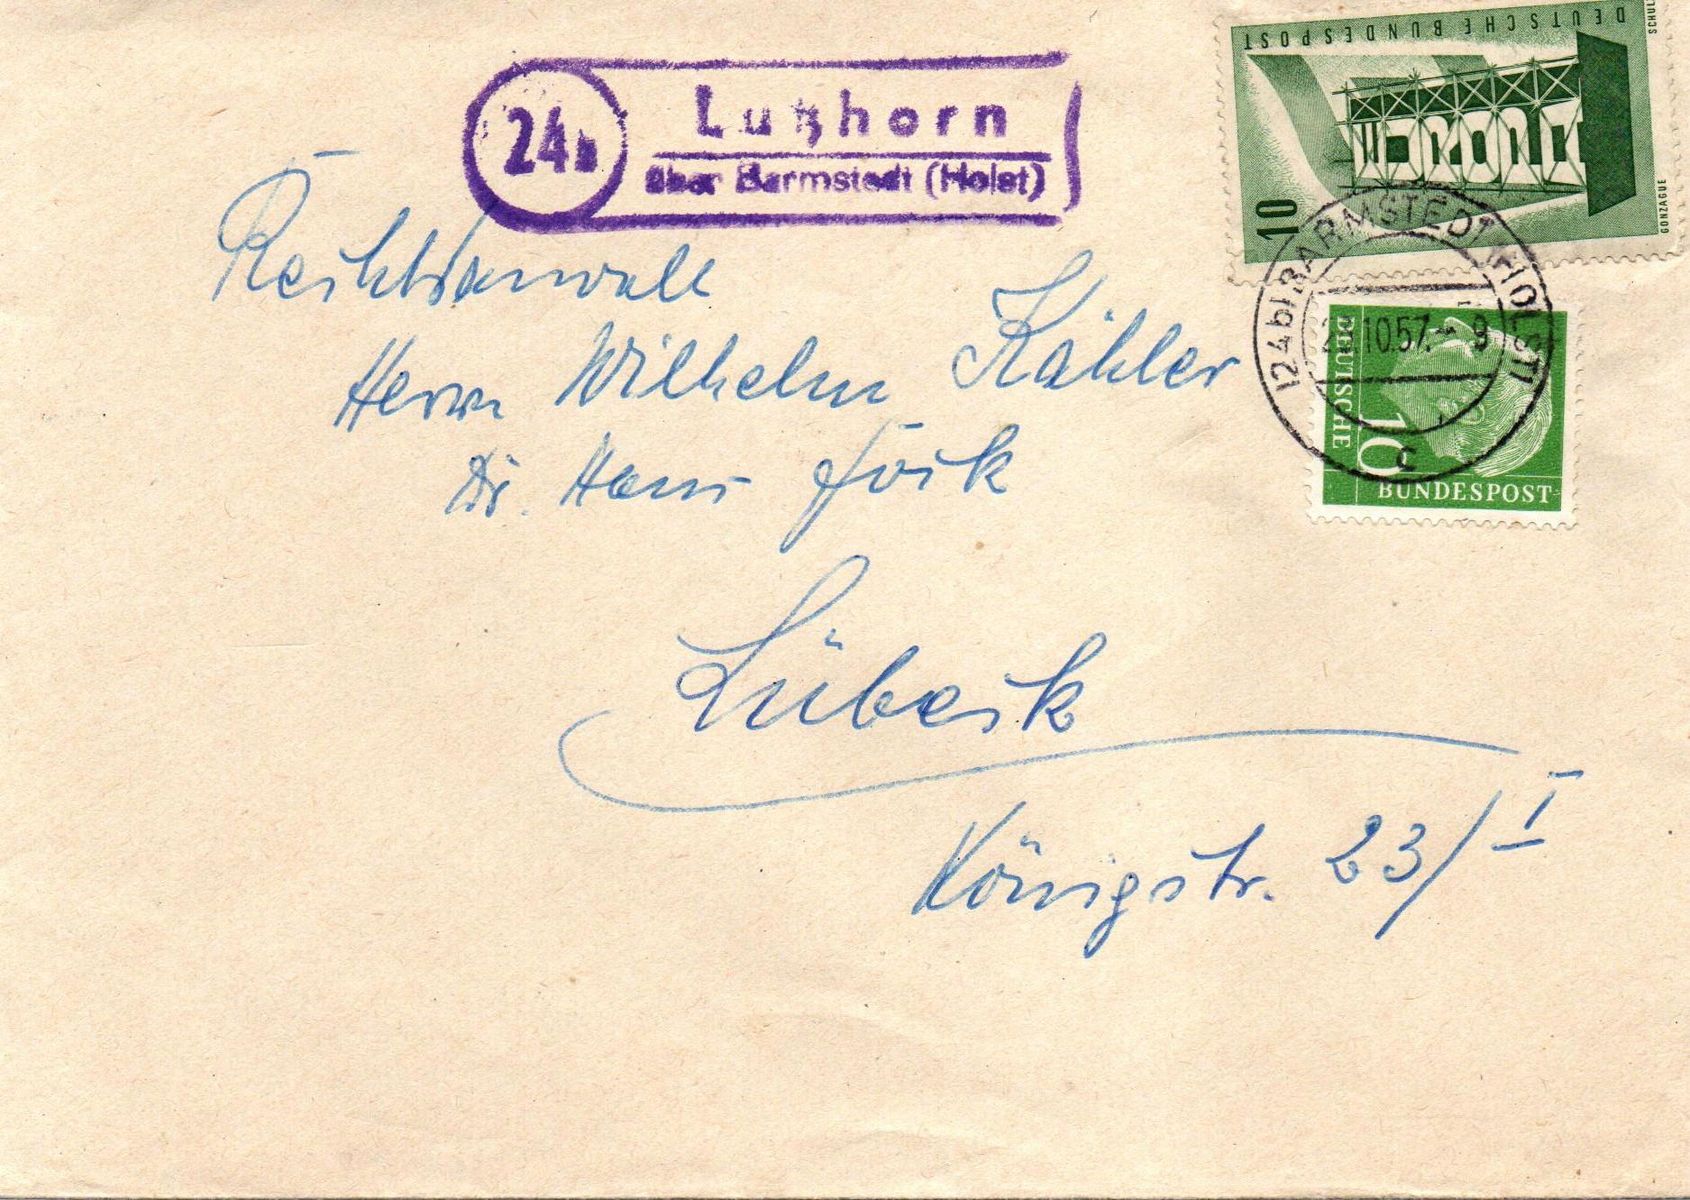 24b
Lutzhorn
über Barmstedt (Holst)
DEUTSCHE BUNDESPOST
EUROPA
10
GONZAGUE
(24b) BARMSTEDT (HOLST)
10.57.-9
c
DEUTSCHE
10
BUNDESPOST
Rechtsanwalt
Herrn Wilhelm Kähler
Dr. Hans Jörk
Lübeck
Königstr. 23/I